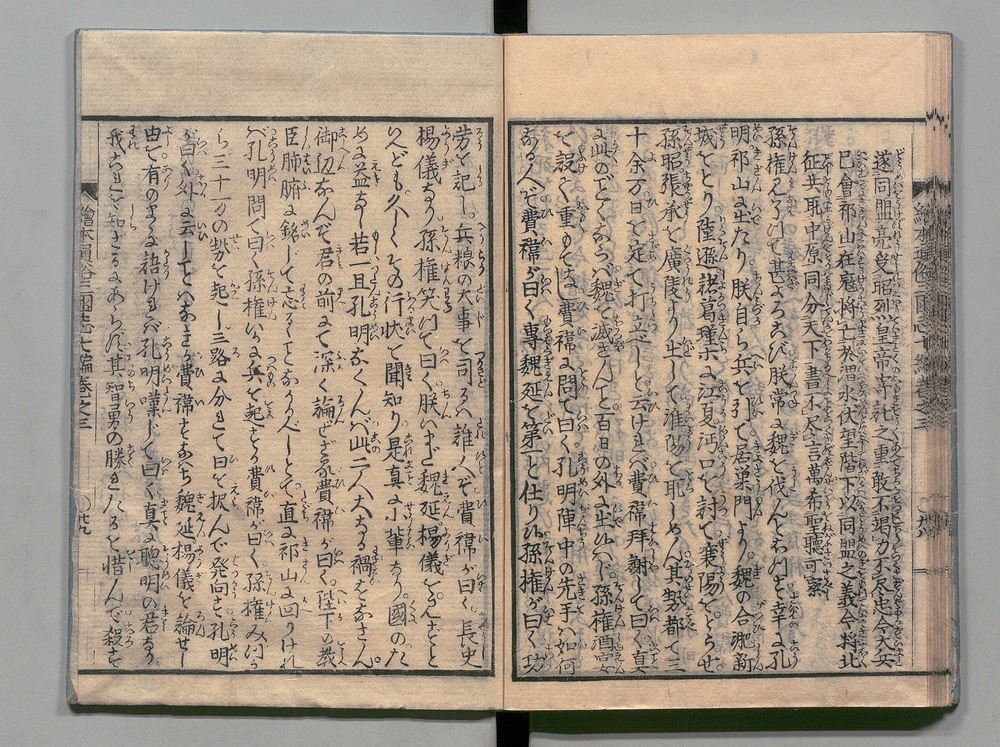 遂同盟亮受昭烈皇帝寄託之重敢不竭力不尽忠今大兵
已會祁山在寇将亡於渭水伏望陛下以同盟之義令将北
征共取中原同分天下書不尽言萬希聖聽可察
孫権見了つて甚よろこび朕常に魏を伐んとおもつに幸に孔
明祁山に出たり朕自ら兵を引て居巣門より魏の合肥新
城をとり陸遜諸葛瑾ホに江夏沔口を討て襄陽をとらせ
孫昭張承を廣陵より出して淮陽を取しめん其勢都て三
十余万日を定て打立べしと云ければ費禕拝謝して曰く真
に此のごとくならば魏を滅さんこと百日の外に出じ孫権酒宴
を設て重もてなし費禕に問て曰く孔明陣中の先手ハ如何
なる人ぞ費禕が曰く専魏延を第一と仕り候孫権が曰く功
労を記し兵粮の大事を司るハ誰人ぞ費禕が曰く長史
楊儀なり孫権笑つて曰く朕いまだ魏延楊儀を見ずと
いへども久しくその行状を聞知り是真に小輩なり國のた
めに益なし若一旦孔明なくんバ此二人大なる禍をなさん
御辺なんぞ君の前にて深く論ぜざる費禕が曰く陛下の教
臣肺腑に銘じて忘るることなかるべしとて直に祁山に回りけれ
バ孔明問て曰く孫権いかに兵を起せる費禕が曰く孫権みづか
ら三十万の勢を起し三路に分れて日を択んで発向す孔明
が曰く外に云しことハなきか費禕すなハち魏延楊儀を論ぜし
由て有のままに語けれバ孔明嘆じて曰く真に聡明の君なり
我これを知ざるにあらねど其智勇の勝れたるを惜んで殺さず
繪本通俗三國志七編巻之三
廿九